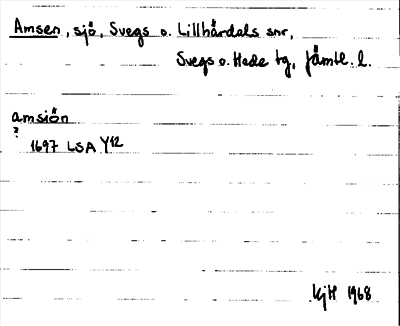 Amsen, sjö, Svegs o. Lillhärdals snr,
Svegs o. Hede tg, Jämtl. l.
amsiön
?
1697 LSA Y12
KjH 1968